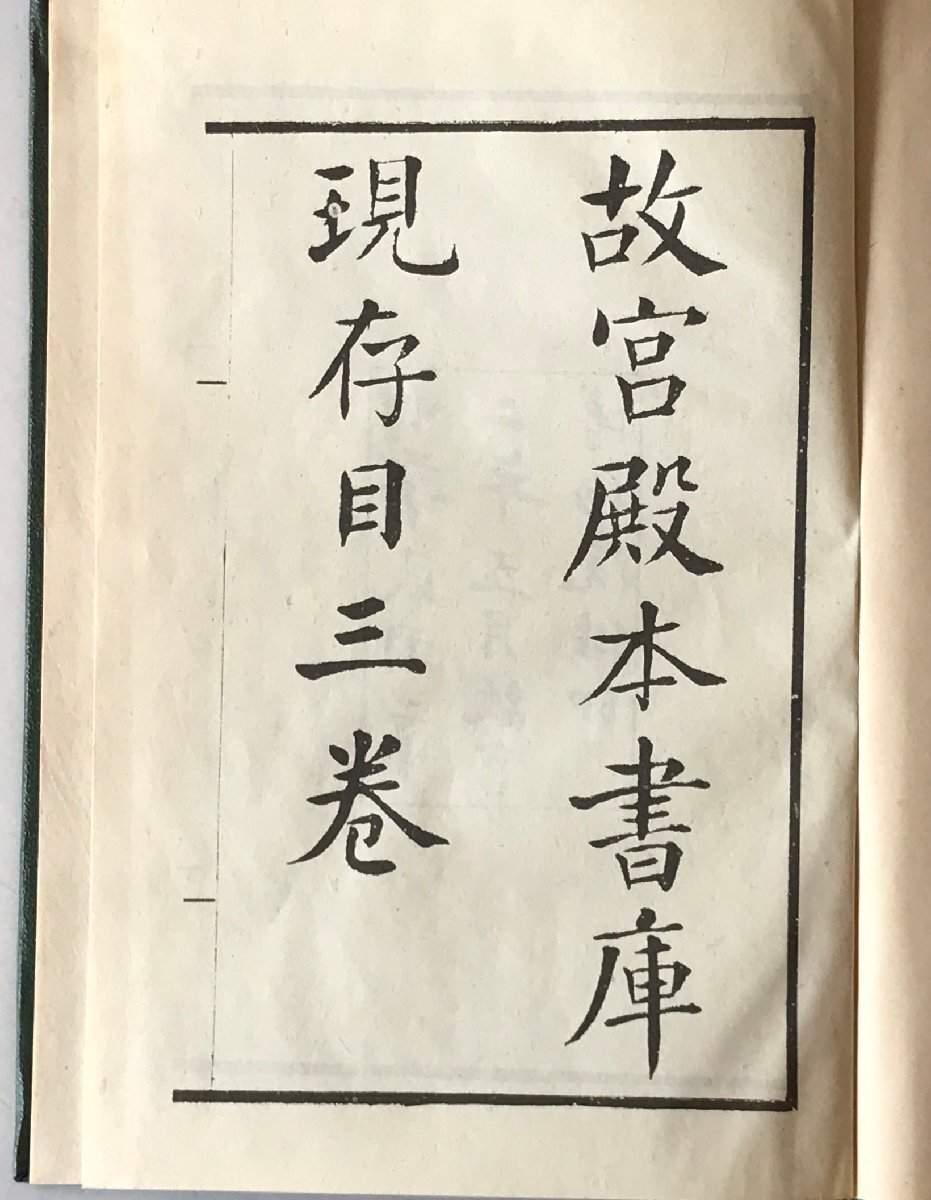 故宫殿本書庫
現存目三卷